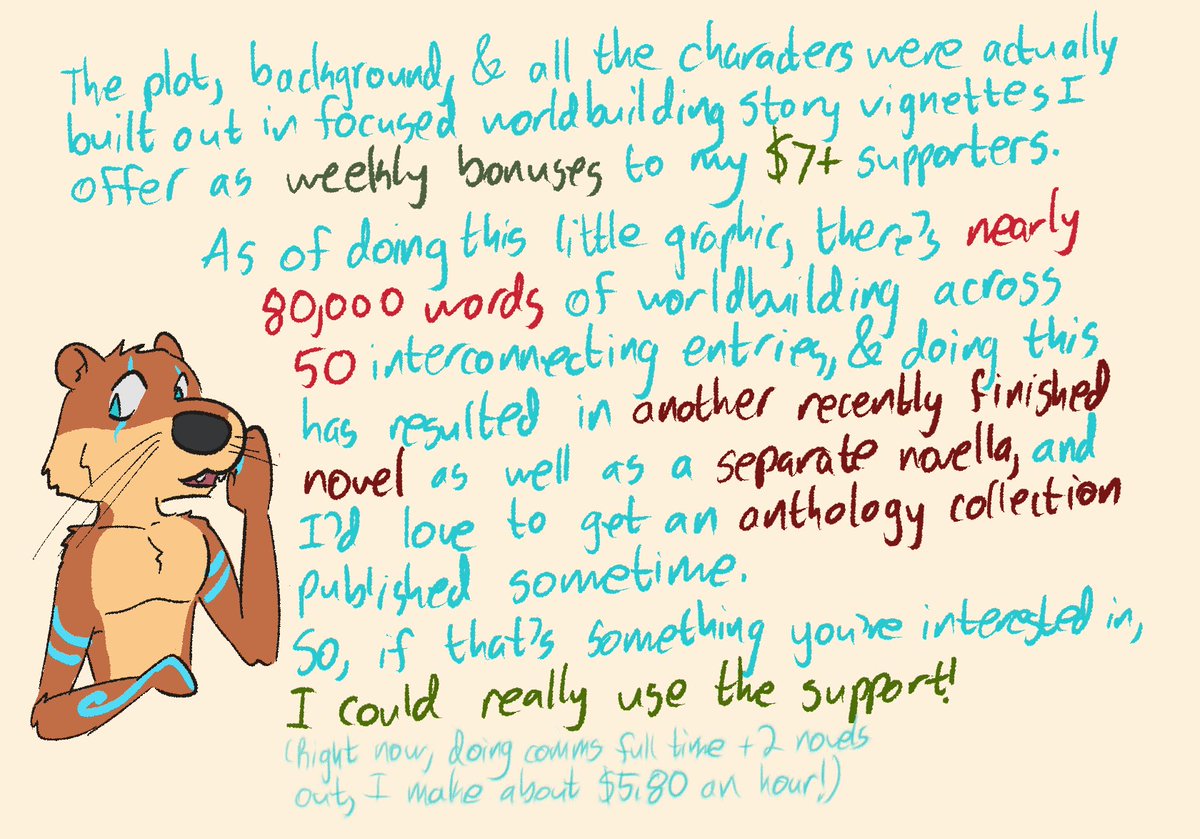 The plot, background, & all the characters were actually
built out in focused worldbuilding story vignettes I
offer as weekly bonuses to my $7+ supporters.
As of doing this little graphic, there's nearly
80,000 words of worldbuilding across
50 interconnecting entries, & doing this
has resulted in another recently finished
novel as well as a separate novella, and
I'd love to get an anthology collection
published sometime.
So, if that's something you're interested in,
I could really use the support!
(Right now, doing comms full time + 2 novels
out, I make about $5.80 an hour!)